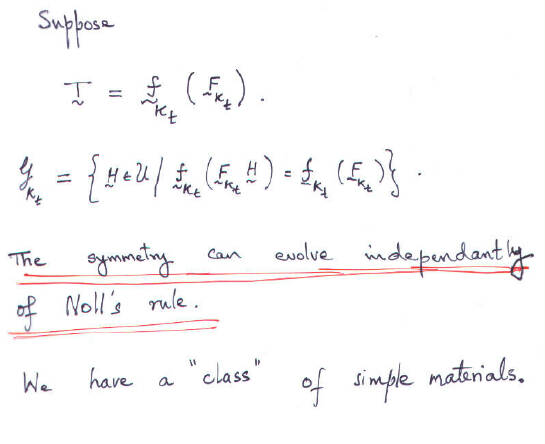 Suppose
T = f_κ_t (F_κ_t).
𝒢_κ_t = { H ∈ 𝒰 / f_κ_t (F_κ_t H) = f_κ_t (F_κ_t) } .
The symmetry can evolve independantly
of Noll's rule.
We have a "class" of simple materials.